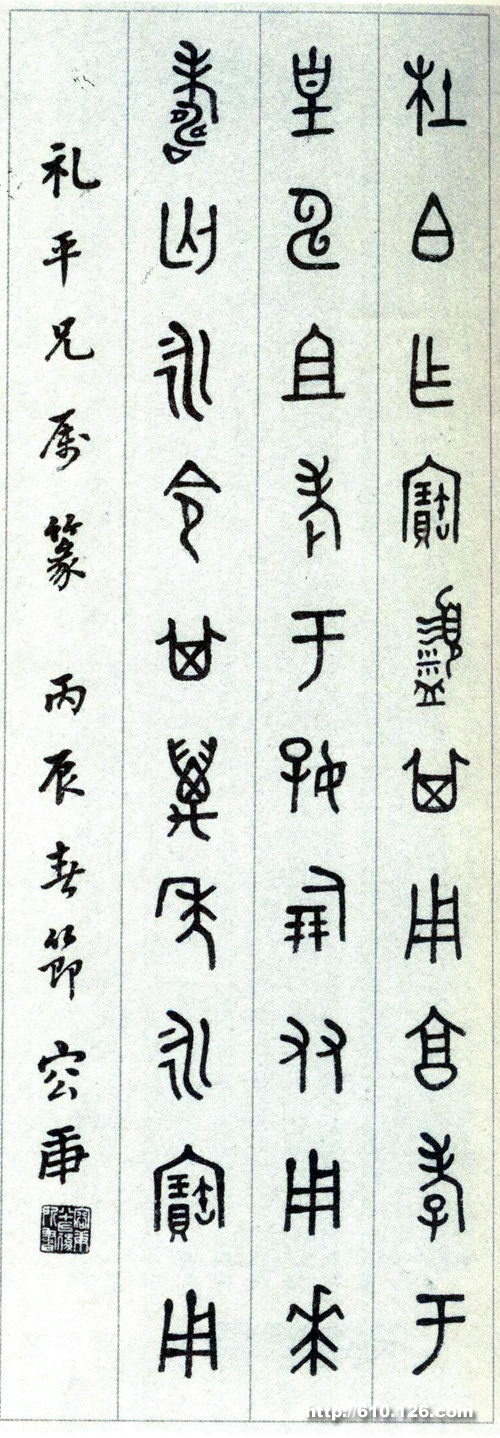 杜白乍寶盨其用享孝于
皇申且考于好倗友用𠦪
壽匄永令其萬年永寶用
礼平兄属篆 丙辰春節 容庚
http://610.126.com